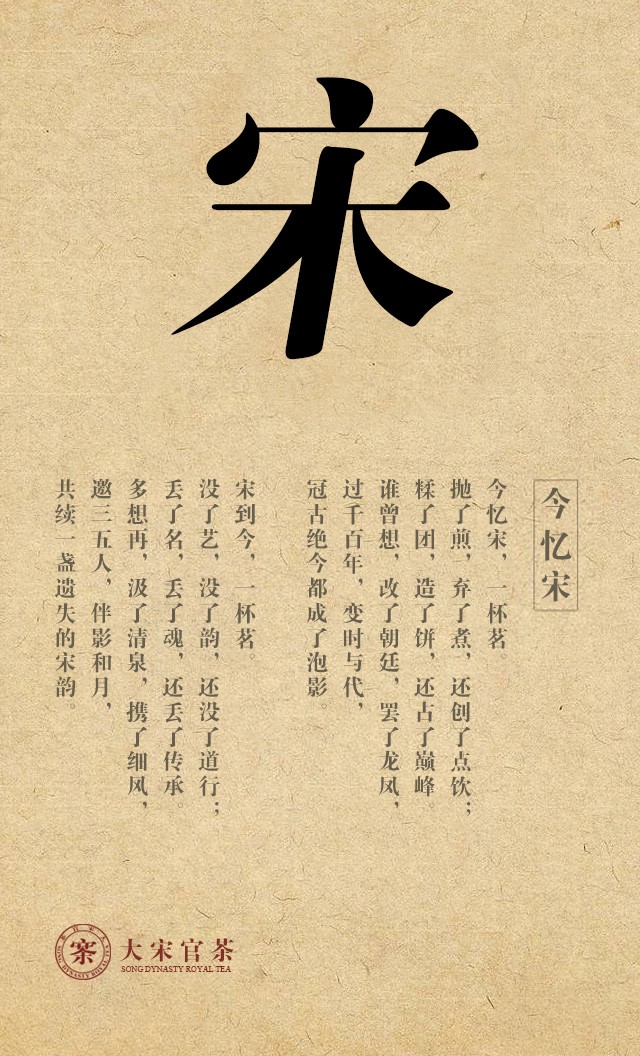 宋
今忆宋
今忆宋，一杯茗。
抛了煎，弃了煮，还创了点饮；
糅了团，造了饼，还占了巅峰
谁曾想，改了朝廷，罢了龙凤，
过千百年，变时与代，
冠古绝今都成了泡影。
宋到今，一杯茗。
没了艺，没了韵，还没了道行；
丢了名，丢了魂，还丢了传承。
多想再，汲了清泉，携了细风，
邀三五人，伴影和月，
共续一盏遗失的宋韵。
大宋官茶
SONG DYNASTY ROYAL TEA